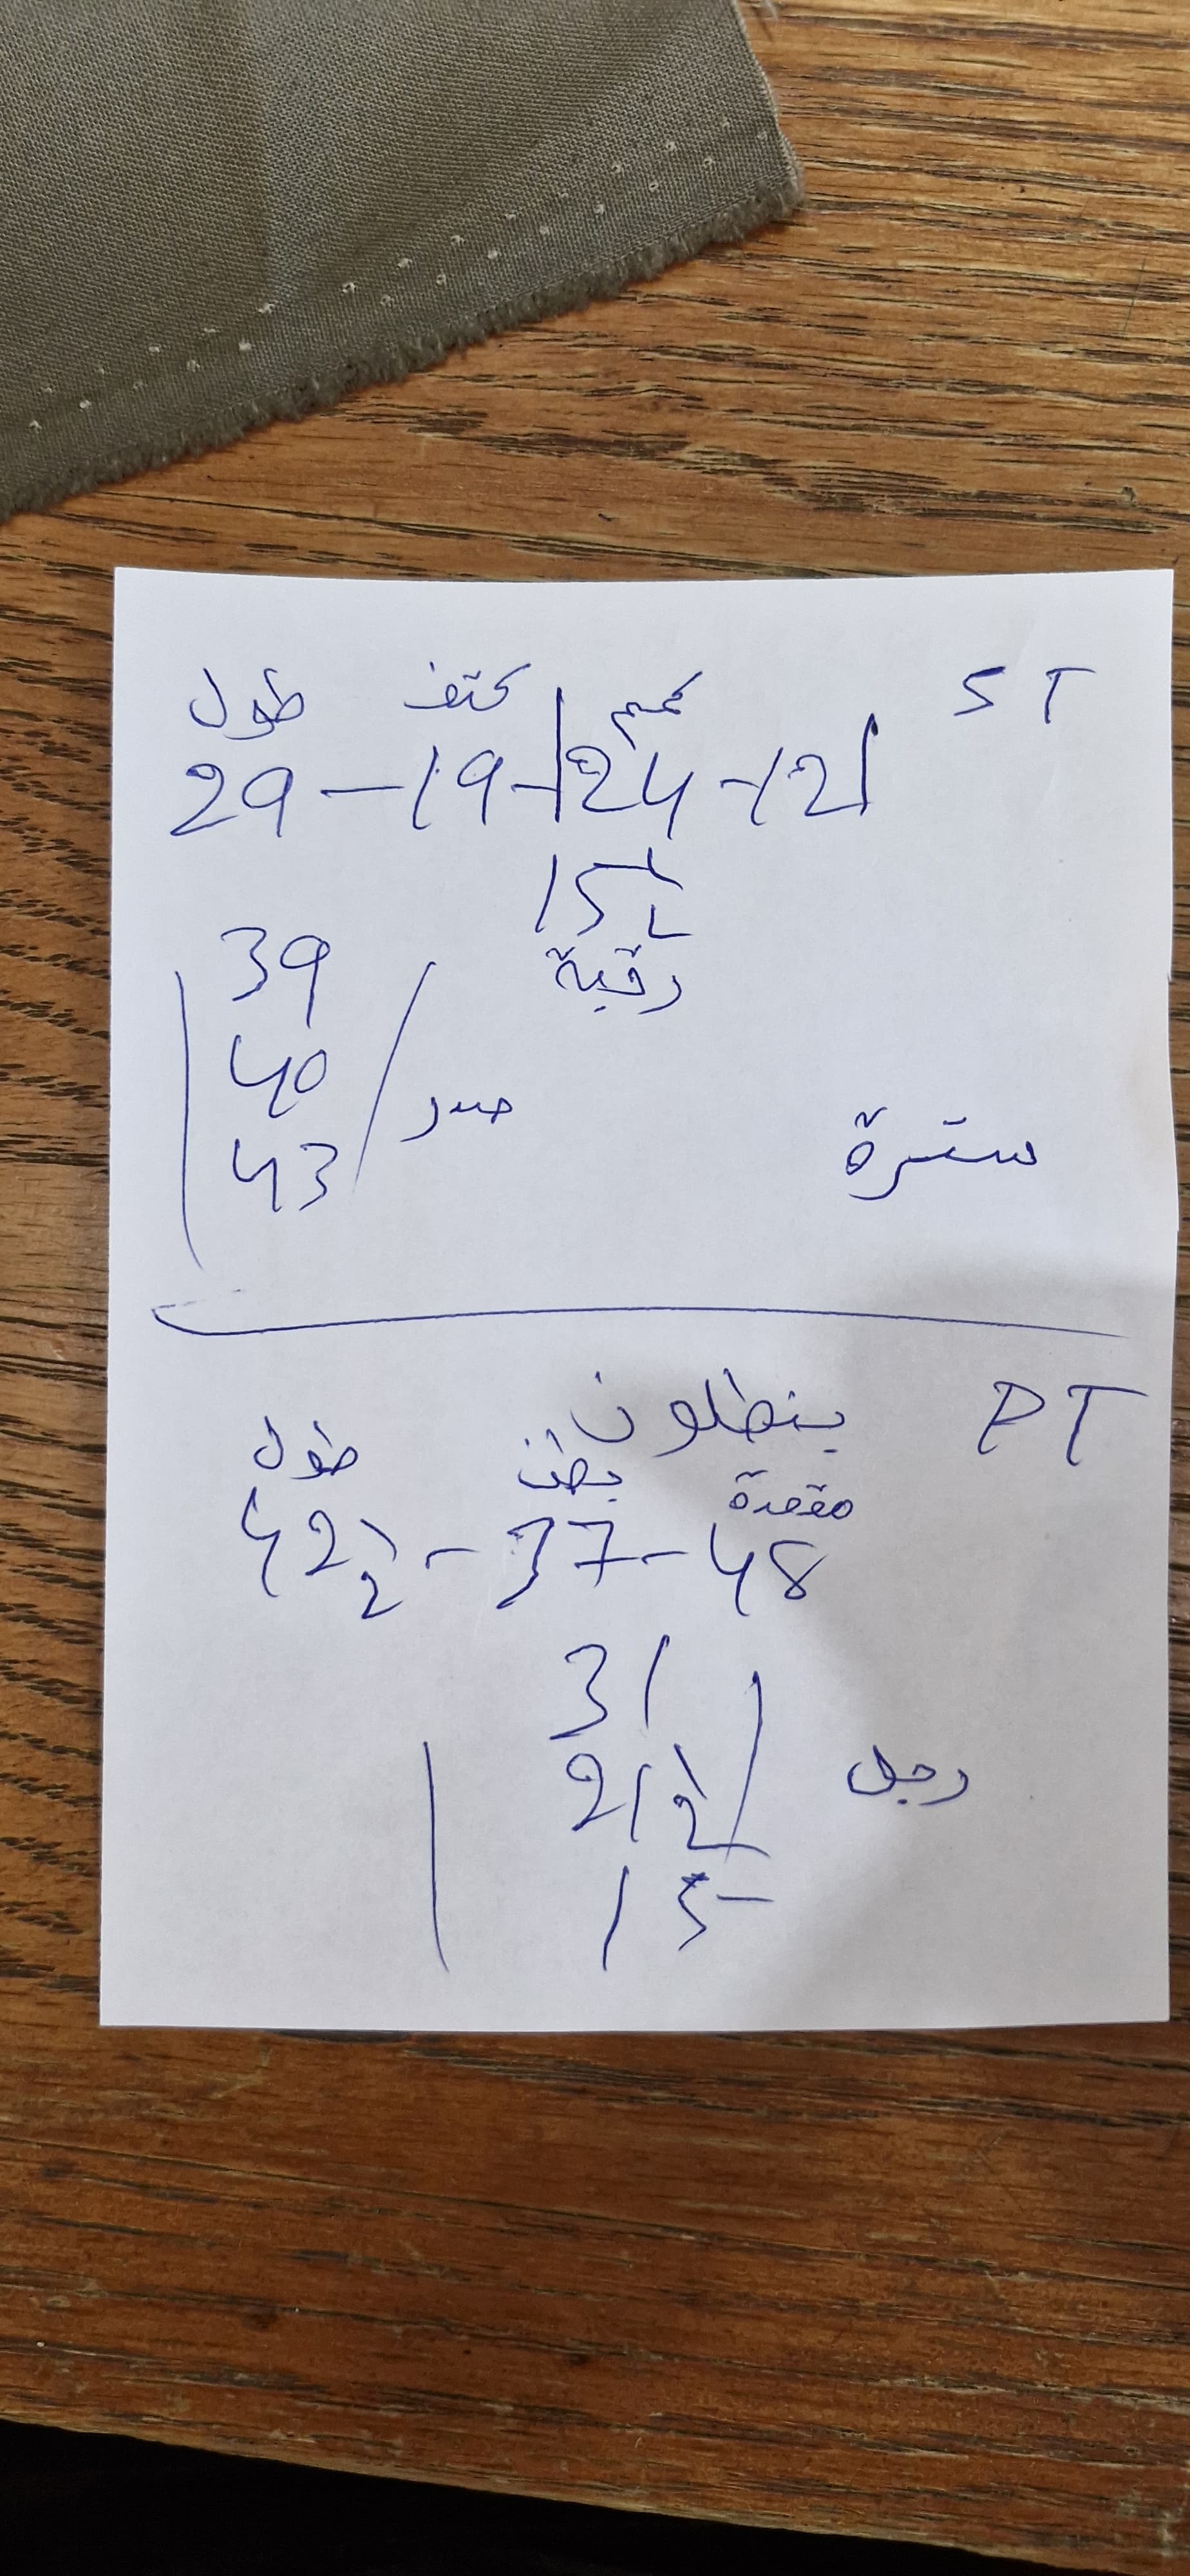 ST
طول كتف كم
29 - 19 - 24 - 12
15 1/2
رقبة
39
40
43
صدر
سترة
PT
بنطلون
طول بطن مقعدة
42 1/2 - 37 - 48
31
21 1/2
15
رجل